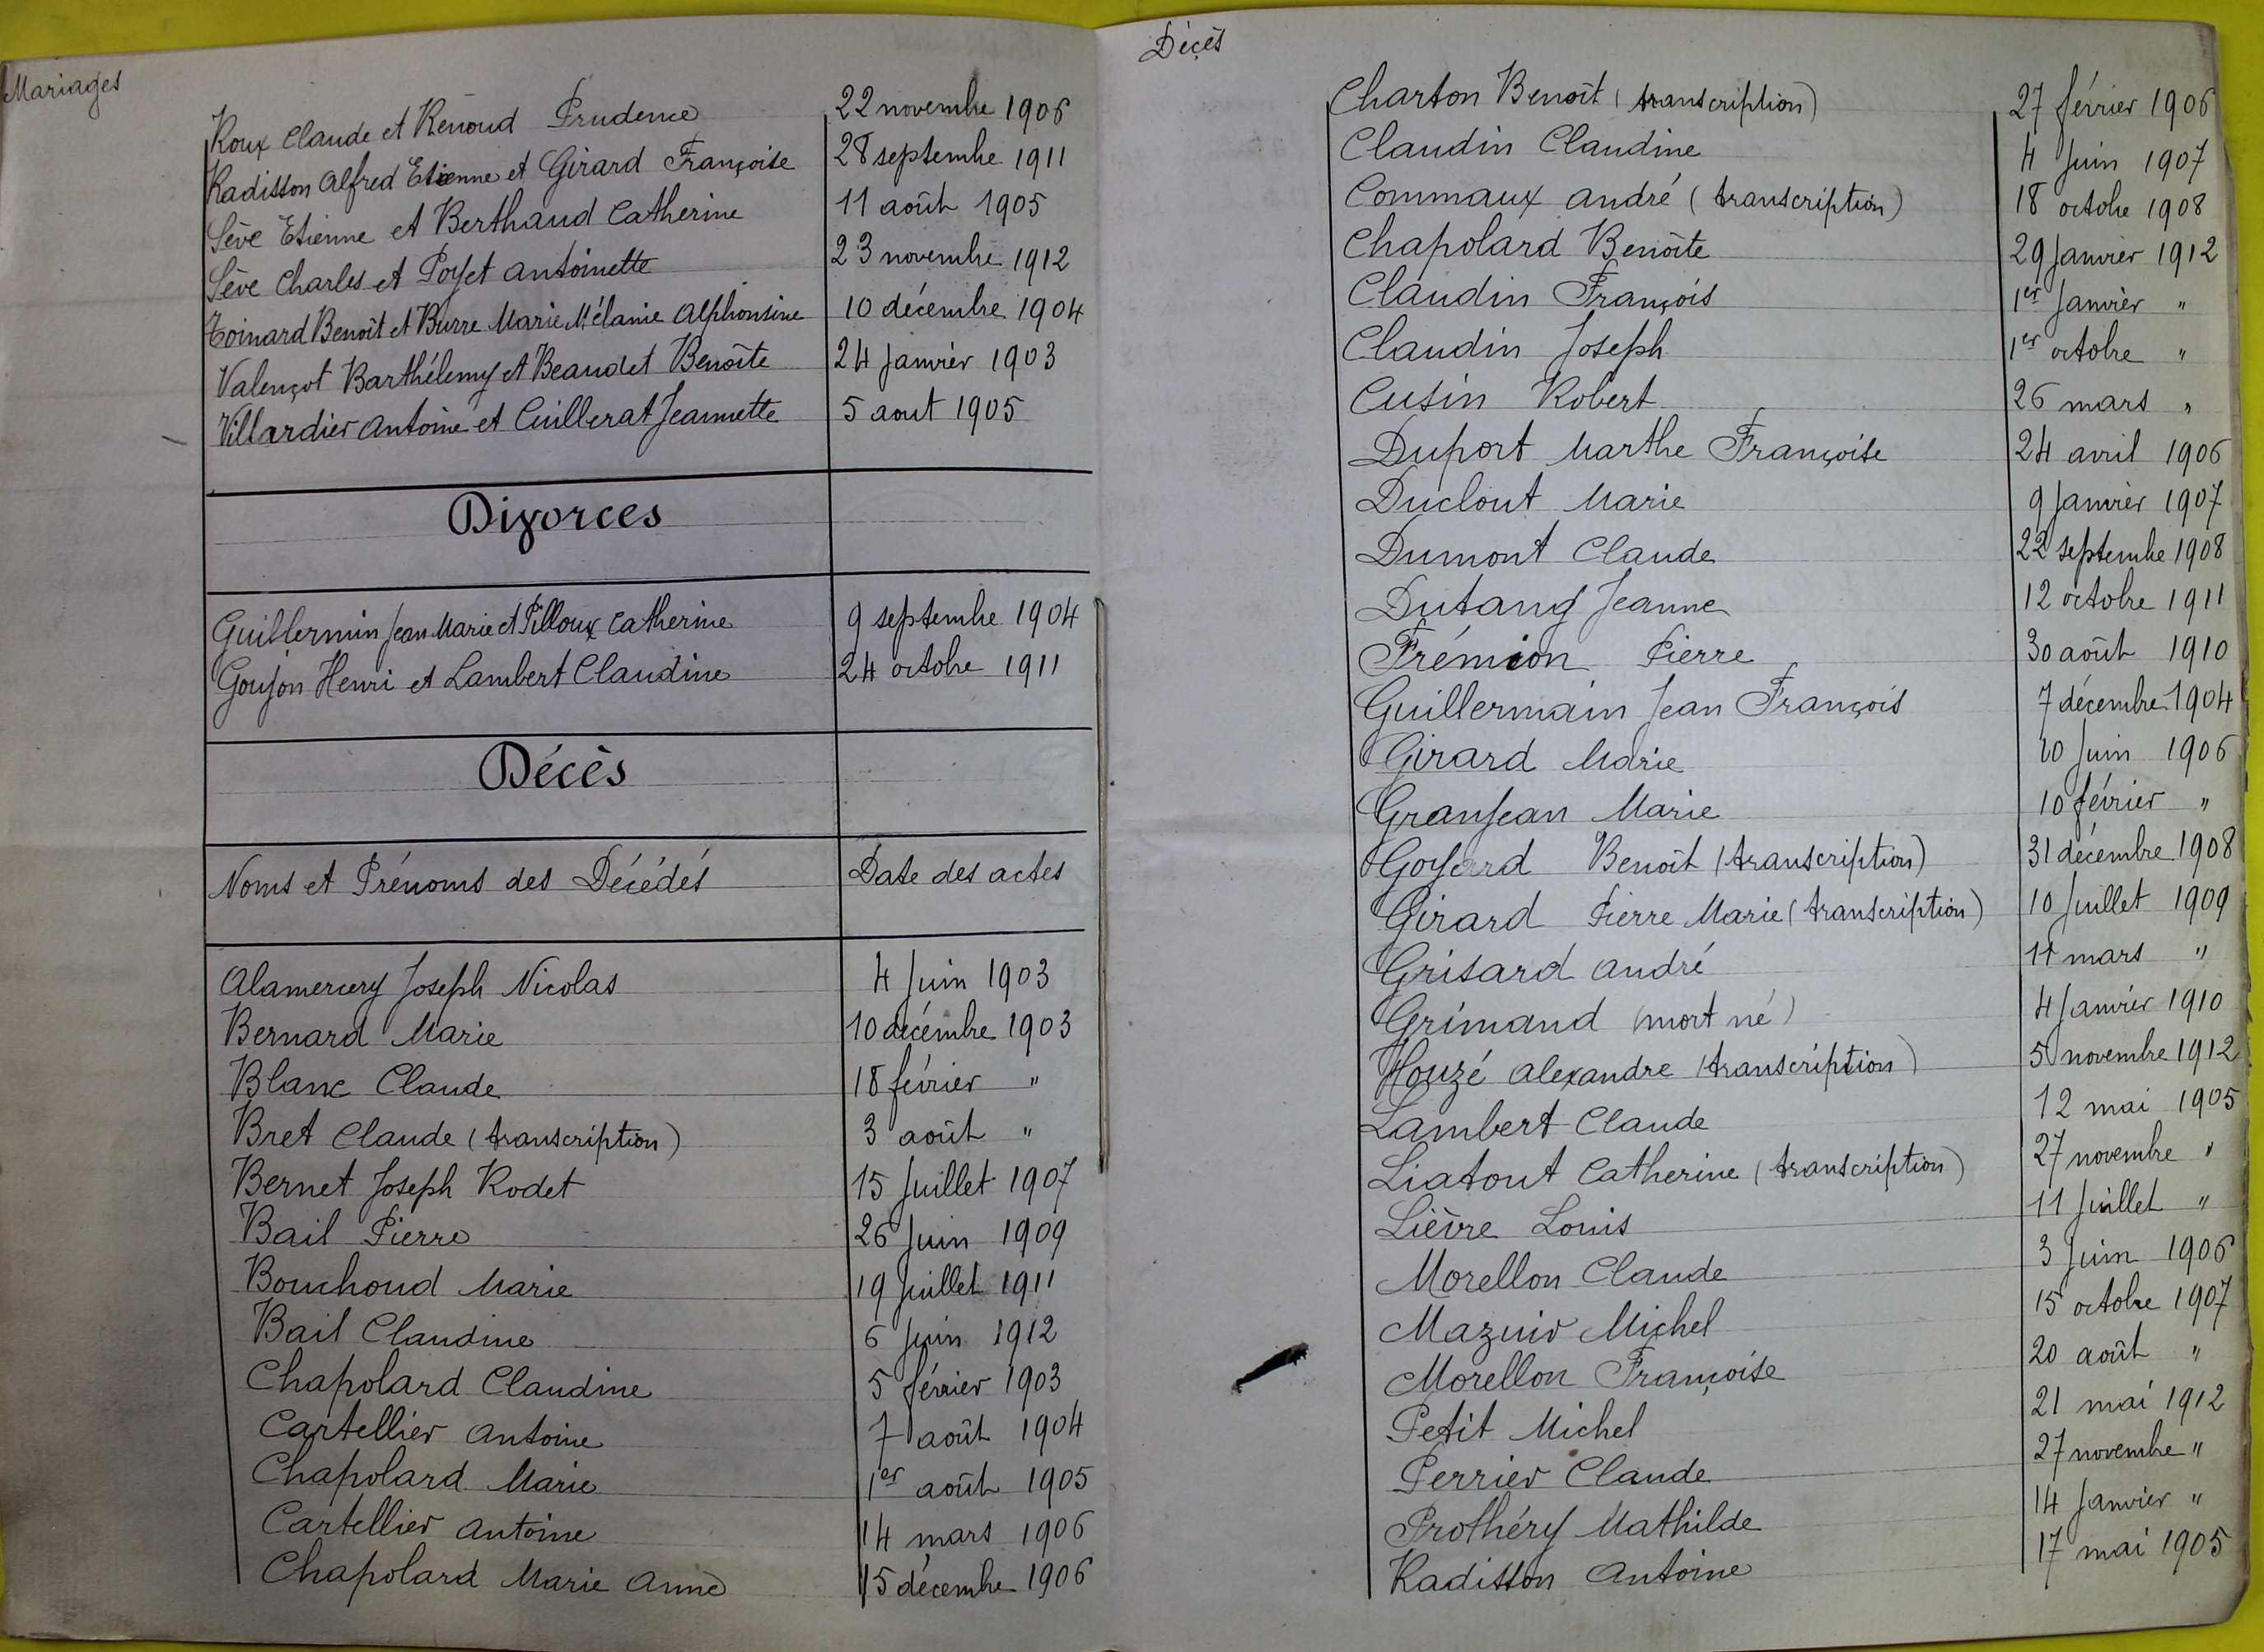 Mariages
Roux Claude et Renoud Prudence 22 novembre 1906
Radisson Alfred Etienne et Girard Françoise 28 septembre 1911
Sève Etienne et Berthaud Catherine 11 août 1905
Sève Charles et Poyet Antoinette 23 novembre 1912
Toinard Benoît et Burre Marie Mélanie Alphonsine 10 décembre 1904
Valençot Barthélemy et Beaudet Benoîte 24 Janvier 1903
Villardier Antoine et Cuillerat Jeannette 5 aout 1905
Divorces
Guillermin Jean Marie et Pilloux Catherine 9 septembre 1904
Goujon Henri et Lambert Claudine 24 octobre 1911
Décès
Noms et Prénoms des Décédés Date des actes
Alamercery Joseph Nicolas 4 Juin 1903
Bernard Marie 10 décembre 1903
Blanc Claude 18 février "
Bret Claude (transcription) 3 août "
Bernet Joseph Rodet 15 Juillet 1907
Bail Pierre 26 Juin 1909
Bouchoud Marie 19 Juillet 1911
Bail Claudine 6 Juin 1912
Chapolard Claudine 5 février 1903
Cartellier Antoine 7 août 1904
Chapolard Marie 1er août 1905
Cartellier Antoine 14 mars 1906
Chapolard Marie Anne 15 décembre 1906
Décès
Charton Benoît (transcription) 27 février 1906
Claudin Claudine 4 Juin 1907
Commaux André (transcription) 18 octobre 1908
Chapolard Benoîte 29 Janvier 1912
Claudin François 1er Janvier "
Claudin Joseph 1er octobre "
Cusin Robert 26 mars "
Duport Marthe Françoise 24 avril 1906
Duclout Marie 9 Janvier 1907
Dumont Claude 22 septembre 1908
Dutang Jeanne 12 octobre 1911
Frémion Pierre 30 août 1910
Guillermain Jean François 7 décembre 1904
Girard Marie Juin 1906
Granjean Marie 10 février "
Goyard Benoît (transcription) 31 décembre 1908
Girard Pierre Marie (transcription) 10 Juillet 1909
Grisard André mars "
Grimand (mort né) 4 Janvier 1910
Houzé Alexandre (transcription) 5 novembre 1912
Lambert Claude 12 mai 1905
Liatout Catherine (transcription) 27 novembre "
Lièvre Louis 11 Juillet "
Morellon Claude 3 Juin 1906
Mazuir Michel 15 octobre 1907
Morellon Françoise 20 août "
Petit Michel 21 mai 1912
Perrier Claude 27 novembre "
Prothéry Mathilde 14 Janvier "
Radisson Antoine 17 mai 1905